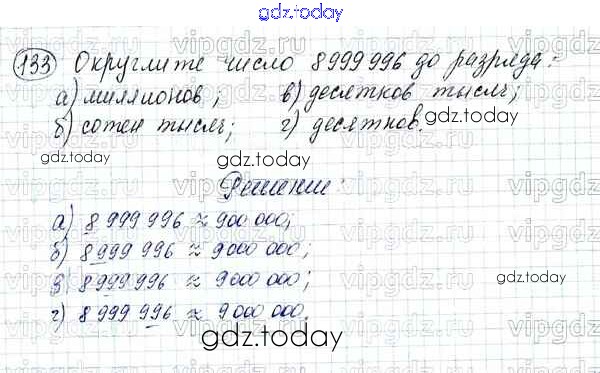 gdz.today
133 Округлите число 8 999 996 до разряда:
а) миллионов; в) десятков тысяч;
б) сотен тысяч; г) десятков.
gdz.today
gdz.today
gdz.today
Решение:
а) 8 999 996 ≈ 900 000;
б) 8 999 996 ≈ 9 000 000;
в) 8 999 996 ≈ 9 000 000;
gdz.today
г) 8 999 996 ≈ 9 000 000.
gdz.today